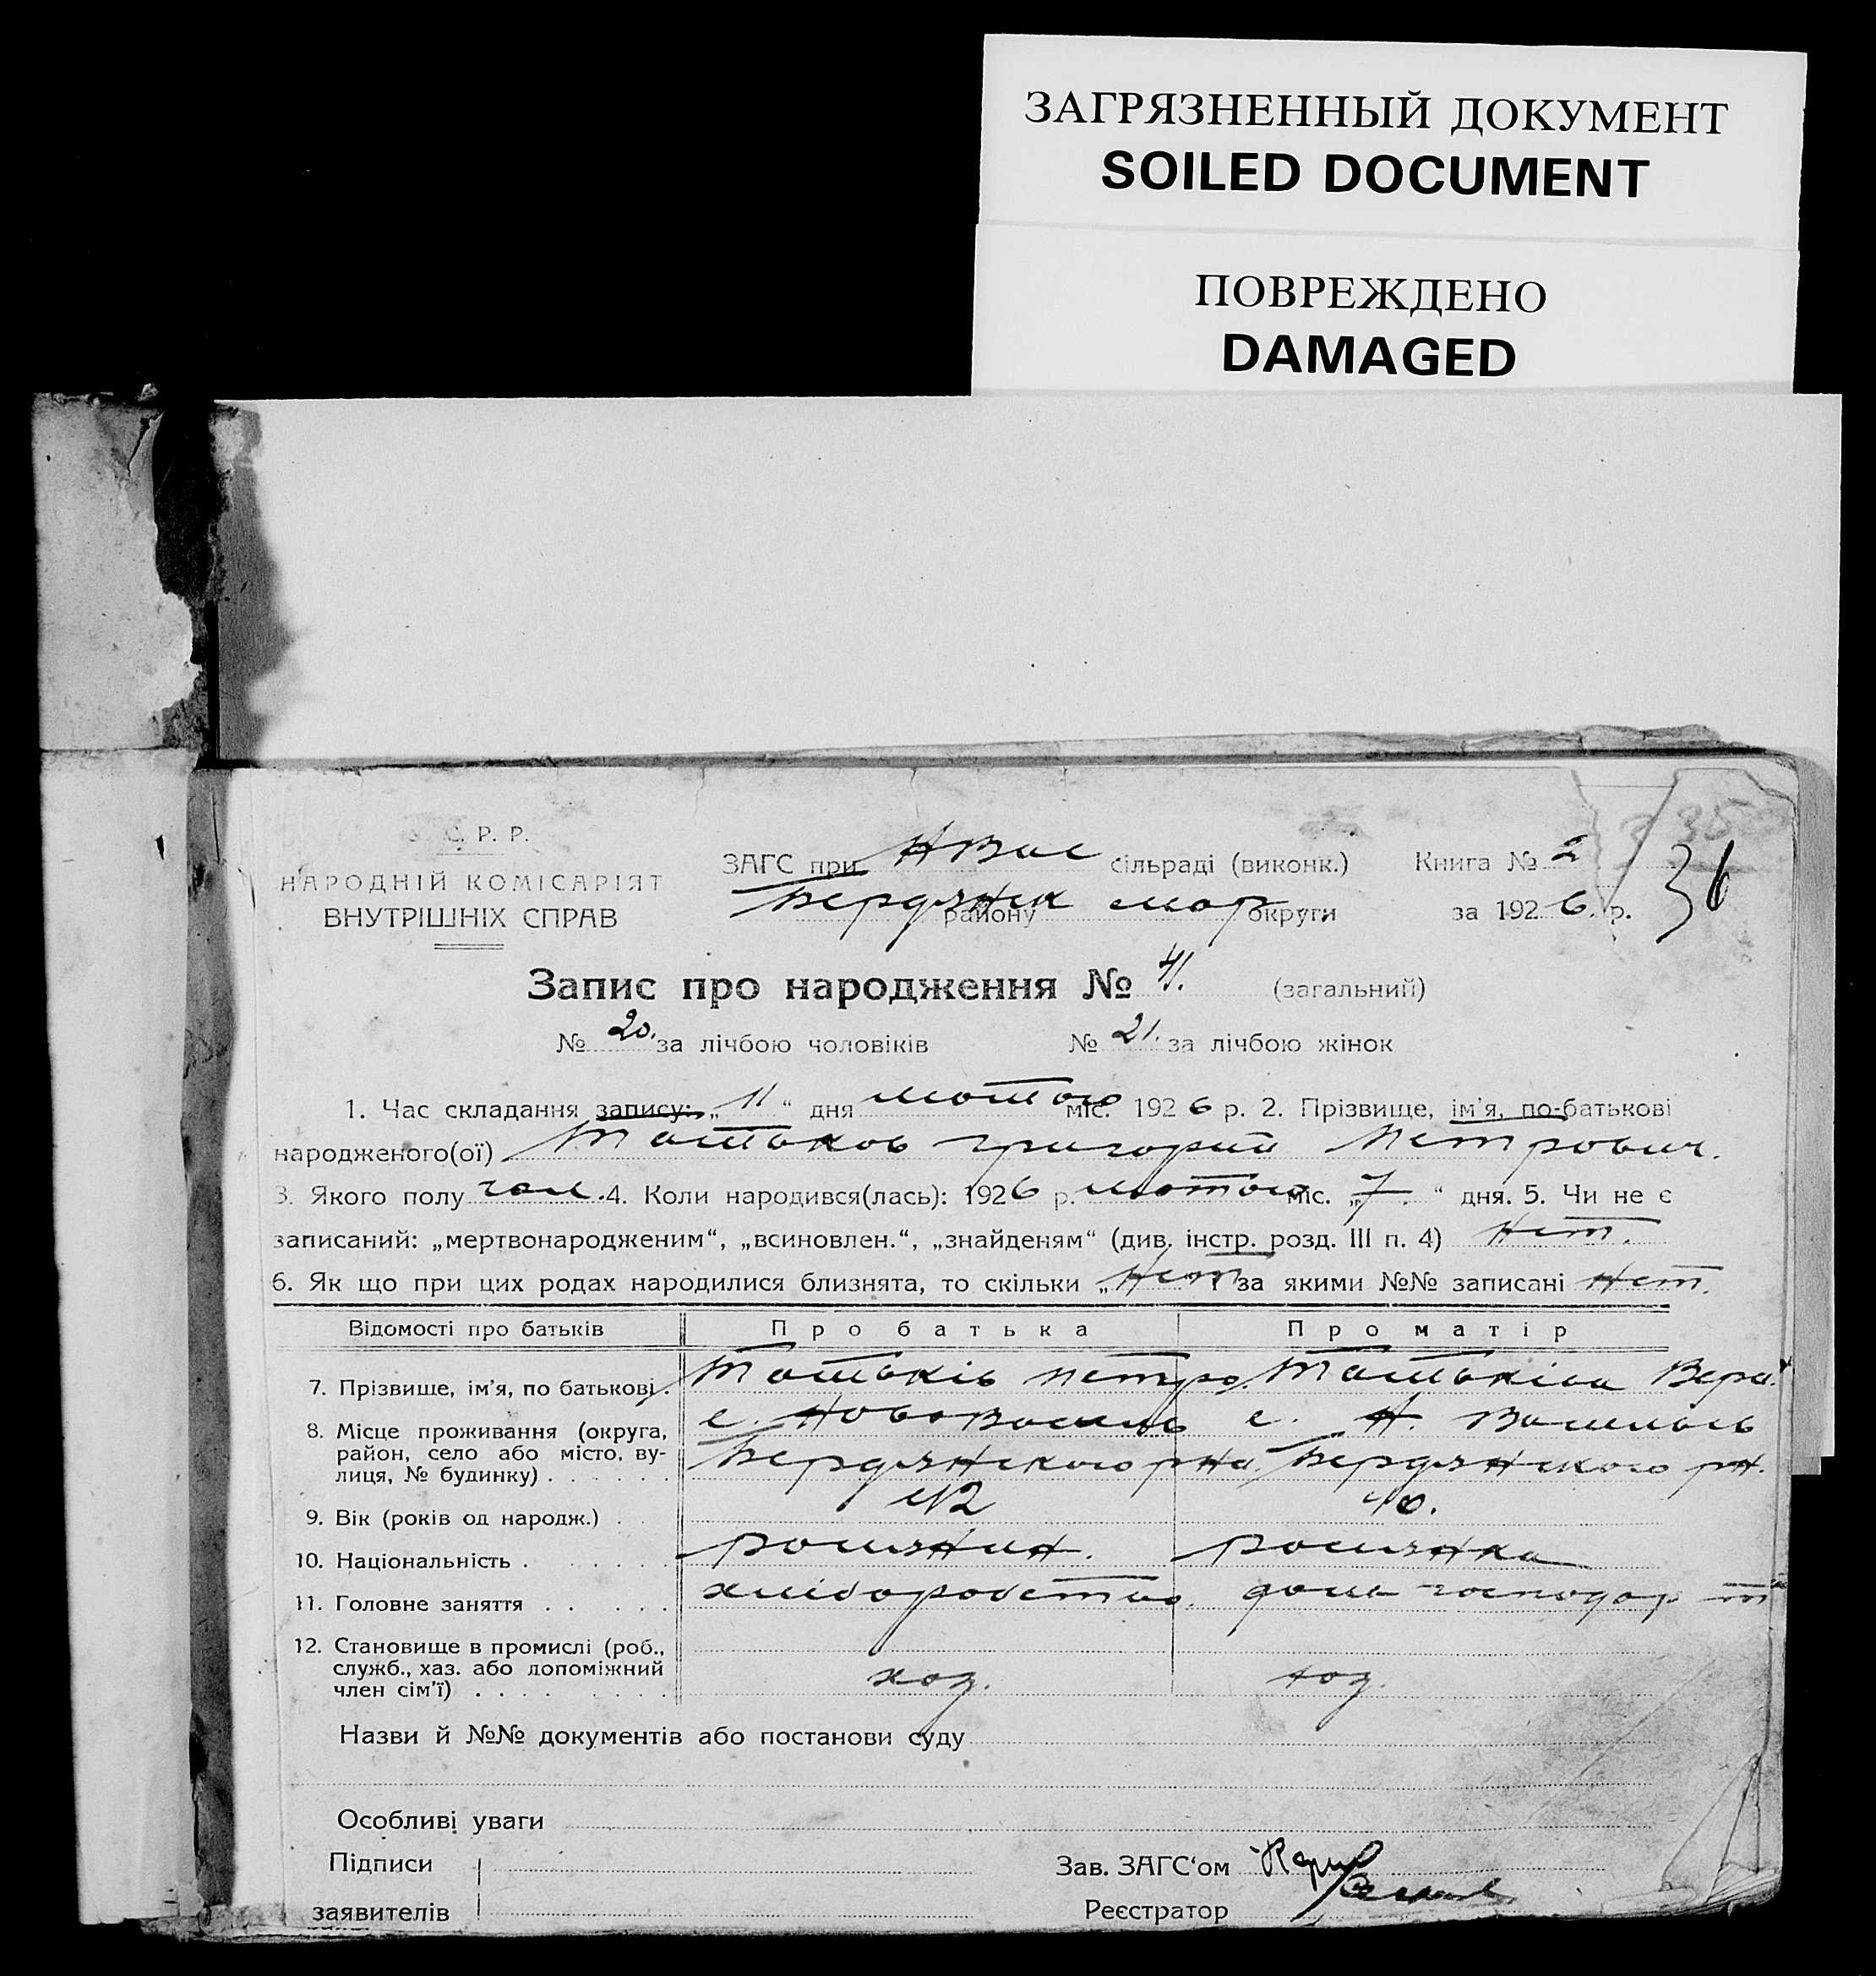 ЗАГРЯЗНЕННЫЙ ДОКУМЕНТ
SOILED DOCUMENT
ПОВРЕЖДЕНО
DAMAGED
С. Р. Р.
НАРОДНІЙ КОМІСАРІЯТ
ВНУТРІШНІХ СПРАВ
ЗАГС при НВас сільраді (виконк.) Книга № 2
Бердянск району мар округи за 1926 р.
36
Запис про народження № 41. (загальний)
№ 20. за лічбою чоловіків № 21. за лічбою жінок
1. Час складання запису: „11“ дня лютого міс. 1926 р. 2. Прізвище, ім'я, по-батькові
народженого(ої) Григорий Петрович.
3. Якого полу чол. 4. Коли народився(лась): 1926 р. лютого міс. „7“ дня. 5. Чи не є
записаний: „мертвонародженим“, „всиновлен.“, „знайденям“ (див. інстр. розд. III п. 4) Нет.
6. Як що при цих родах народилися близнята, то скільки „Нет за якими №№ записані Нет.
Відомості про батьків Про батька Про матір
7. Прізвище, ім'я, по батькові. Петро. Вера
8. Місце проживання (округа, район, село або місто, вулиця, № будинку) с. Нововасиль с. Н. Василь
Бердянского рна Бердянского рн.
9. Вік (років од народж.) 42 40.
10. Національність росиянин. росиянка
11. Головне заняття хліборобство. дома господар
12. Становище в промислі (роб.,
служб., хаз. або допоміжний
член сім'ї) хоз. хоз.
Назви й №№ документів або постанови суду
Особливі уваги
Підписи
заявителів
Зав. ЗАГС'ом
Реєстратор